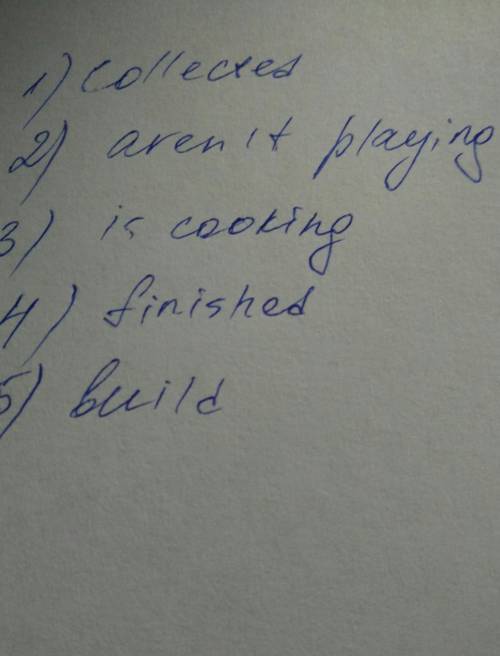 1) collected
2) aren't playing
3) is cooking
4) finished
5) build